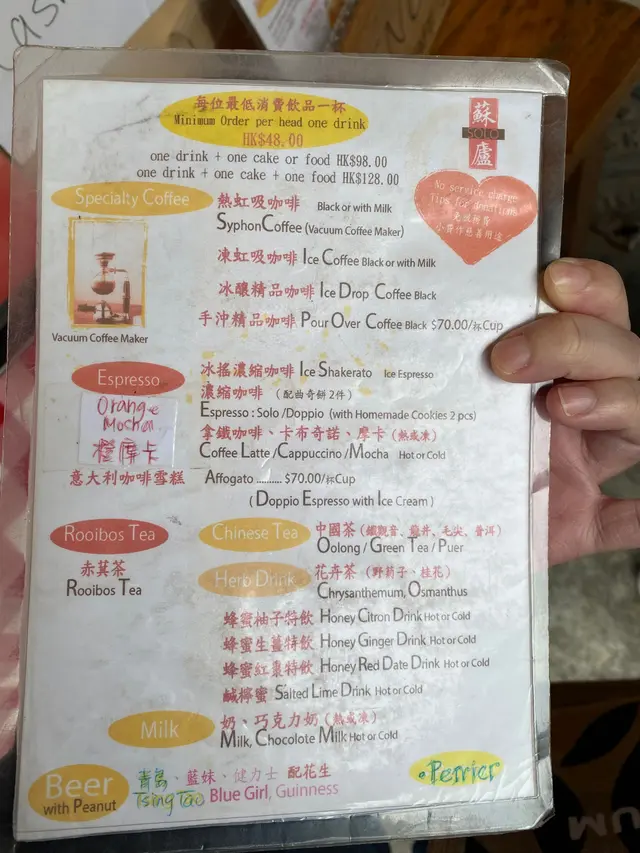 每位最低消費飲品一杯
Minimum Order per head one drink
HK$48.00
one drink + one cake or food HK$98.00
one drink + one cake + one food HK$128.00
蘇
SOLO
廬
No service charge
Tips for donations
免收服務
小費作慈善用途
Specialty Coffee
熱虹吸咖啡 Black or with Milk
Syphon Coffee (Vacuum Coffee Maker)
凍虹吸咖啡 Ice Coffee Black or with Milk
冰釀精品咖啡 Ice Drop Coffee Black
手沖精品咖啡 Pour Over Coffee Black $70.00/杯Cup
Vacuum Coffee Maker
Espresso
冰搖濃縮咖啡 Ice Shakerato Ice Espresso
濃縮咖啡 (配曲奇餅2件)
Espresso : Solo /Doppio (with Homemade Cookies 2 pcs)
Orange
Mocha
橙摩卡
拿鐵咖啡、卡布奇諾、摩卡 (熱或凍)
Coffee Latte /Cappuccino /Mocha Hot or Cold
意大利咖啡雪糕 Affogato .......... $70.00/杯Cup
( Doppio Espresso with Ice Cream )
Rooibos Tea
赤萁茶
Rooibos Tea
Chinese Tea
中國茶 (鐵觀音、龍井、毛尖、普洱)
Oolong / Green Tea / Puer
Herb Drink
花卉茶 (野菊子、桂花)
Chrysanthemum, Osmanthus
蜂蜜柚子特飲 Honey Citron Drink Hot or Cold
蜂蜜生薑特飲 Honey Ginger Drink Hot or Cold
蜂蜜紅棗特飲 Honey Red Date Drink Hot or Cold
鹹檸蜜 Salted Lime Drink Hot or Cold
Milk
奶、巧克力奶 (熱或凍)
Milk, Chocolate Milk Hot or Cold
Beer
with Peanut
青島、藍妹、健力士 配花生
Tsing Tao Blue Girl, Guinness
Perrier